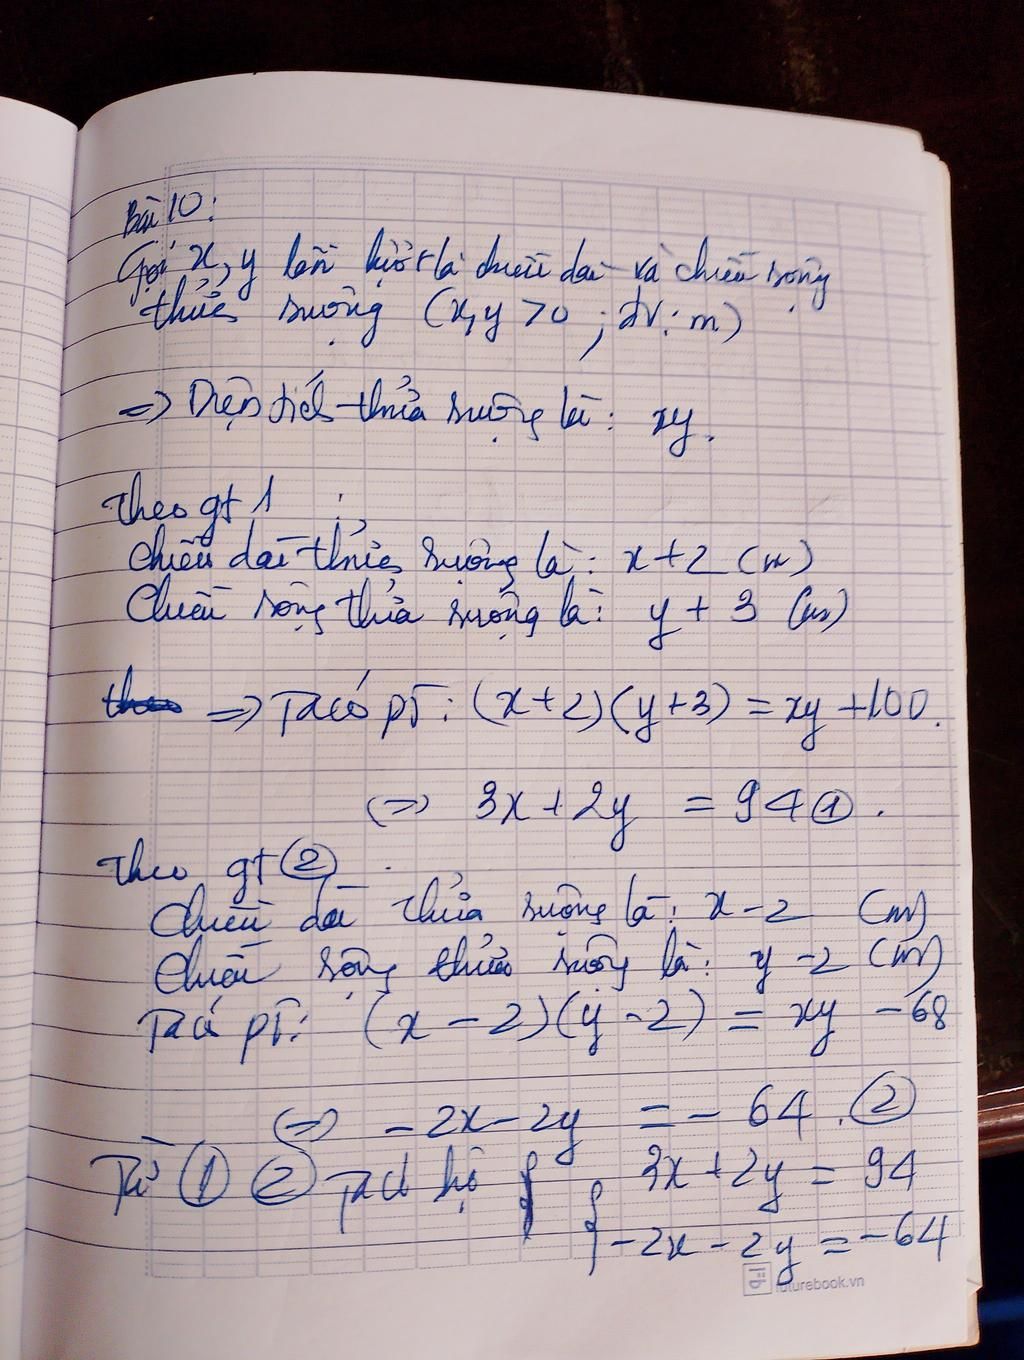 Bài 10:
Gọi x, y lần lượt là chiều dài và chiều rộng
thửa ruộng (x, y > 0 ; đv: m)
=> Diện tích thửa ruộng là: xy.
Theo gt 1 :
Chiều dài thửa ruộng là: x + 2 (m)
Chiều rộng thửa ruộng là: y + 3 (m)
=> Ta có pt: (x+2)(y+3) = xy + 100.
<=> 3x + 2y = 94 ①.
Theo gt ②.
Chiều dài thửa ruộng là: x - 2 (m)
Chiều rộng thửa ruộng là: y - 2 (m)
Ta có pt: (x - 2)(y - 2) = xy - 68
<=> - 2x - 2y = - 64. ②
Từ ① ② Ta có hệ { 3x + 2y = 94
{ -2x - 2y = -64
futurebook.vn